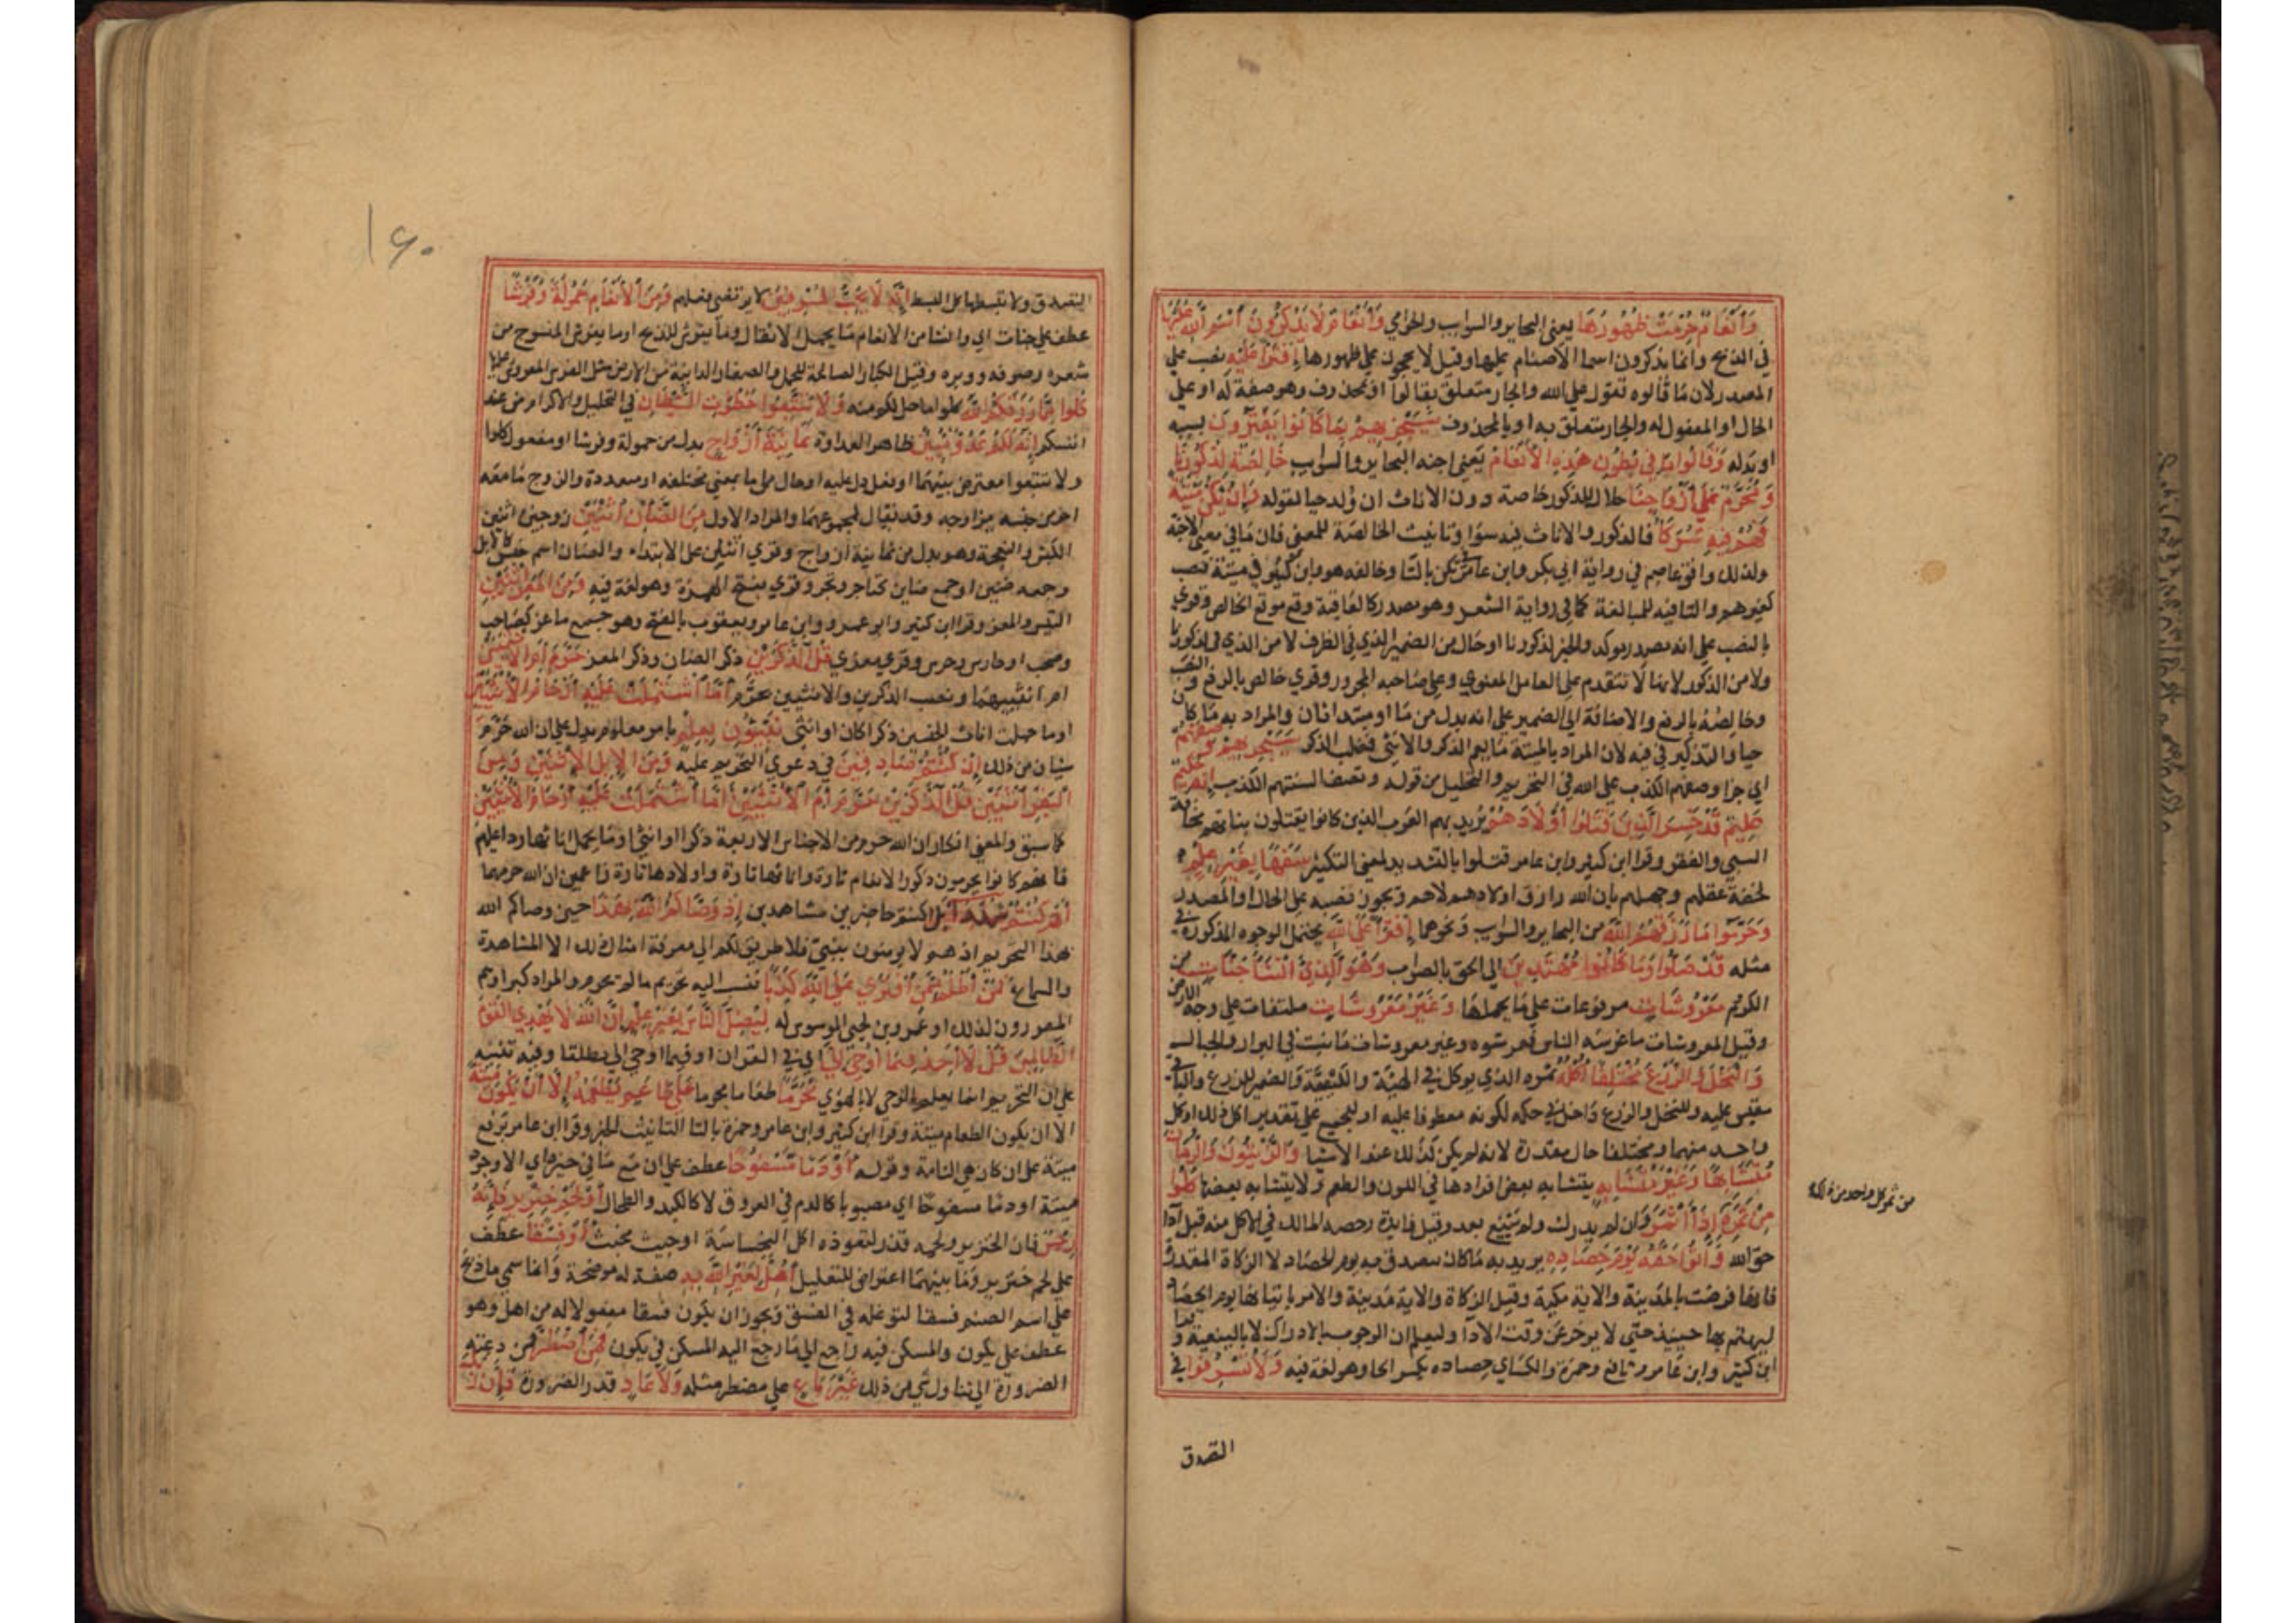 وَأَنْعَامٌ حُرِّمَتْ ظُهُورُهَا يعني البحاير والسوايب والحوامي وَأَنْعَامٌ لَا يَذْكُرُونَ اسْمَ اللَّهِ عَلَيْهَا
في الذبح وانما يذكرون اسما الاصنام عليها وقيل لا يحجون على ظهورها اِفْتِرَاءً عَلَيْهِ نصب على
المصدر لان ما قالوه تقول على الله والجار متعلق بقالوا او بمحذوف وهو صفة له او على
الحال او المفعول له والجار متعلق به او بالمحذوف سَيَجْزِيهِمْ بِمَا كَانُوا يَفْتَرُونَ بسببه
او بدله وَقَالُوا مَا فِي بُطُونِ هَذِهِ الْأَنْعَامِ يعني اجنة البحاير والسوايب خَالِصَةٌ لِذُكُورِنَا
وَمُحَرَّمٌ عَلَى أَزْوَاجِنَا حلال للذكور خاصة دون الاناث ان ولد حيا لقوله وَإِنْ يَكُنْ مَيْتَةً
فَهُمْ فِيهِ شُرَكَاءُ فالذكور والاناث فيه سوا وتانيث الخالصة للمعني فان ما في معنى الاجنة
ولذلك وافق عاصم في رواية ابي بكر وابن عامر تكن بالتا وخالفه هو وابن كثير في ميتة فنصب
كغيرهم والتا فيه للمبالغة كما في رواية الشعر وهو مصدر كالعافية وقع موقع الخالص وقري
بالنصب على انه مصدر موكد والخبر لذكورنا او حال من الضمير الذي في الظرف لا من الذي في لذكورنا
ولا من الذكور لانها لا تتقدم على العامل المعنوي وعلى صاحبه المجرور وقري خالص بالرفع والنصب
وخالصه بالرفع والاضافة الى الضمير على انه بدل من ما او مبتدا ثان والمراد به ما كان
حيا والتذكير في فيه لان المراد بالميتة ما يعم الذكر والانثى فغلب الذكر سَيَجْزِيهِمْ وَصْفَهُمْ
اي جزا وصفهم الكذب على الله في التحريم والتحليل من قوله وتصف السنتهم الكذب إِنَّهُ حَكِيمٌ
عَلِيمٌ قَدْ خَسِرَ الَّذِينَ قَتَلُوا أَوْلَادَهُمْ يريد بهم العرب الذين كانوا يقتلون بناتهم مخافة
السبي والفقر وقرا ابن كثير وابن عامر قتلوا بالتشديد لمعني التكثير سَفَهًا بِغَيْرِ عِلْمٍ
لخفة عقلهم وجهلهم بان الله رازق اولادهم لا هم ويجوز نصبه على الحال او المصدر
وَحَرَّمُوا مَا رَزَقَهُمُ اللَّهُ من البحاير والسوايب ونحوهما اِفْتِرَاءً عَلَى اللَّهِ يحتمل الوجوه المذكورة في
مثله قَدْ ضَلُّوا وَمَا كَانُوا مُهْتَدِينَ الى الحق بالصواب وَهُوَ الَّذِي أَنْشَأَ جَنَّاتٍ من
الكروم مَعْرُوشَاتٍ مرفوعات على ما يحملها وَغَيْرَ مَعْرُوشَاتٍ ملتفات على وجه الارض
وقيل المعروشات ما غرسه الناس فعرشوه وغير معروشات ما نبت في البراري والجبال
وَالنَّخْلَ وَالزَّرْعَ مُخْتَلِفًا أُكُلُهُ ثمره الذي يوكل في الهيئة والكيفية والضمير للزرع والباقي
مقيس عليه وللنخل والزرع داخل في حكمه لكونه معطوفا عليه او للجميع على تقدير اكل ذلك او كل
واحد منهما ومختلفا حال مقدرة لانه لم يكن كذلك عند الانشا وَالزَّيْتُونَ وَالرُّمَّانَ
مُتَشَابِهًا وَغَيْرَ مُتَشَابِهٍ يتشابه بعض افرادها في اللون والطعم ولا يتشابه بعضها كُلُوا
مِنْ ثَمَرِهِ إِذَا أَثْمَرَ وان لم يدرك ولم يينع بعد وقيل فايدة رخصه المالك في الاكل منه قبل ادا
حق الله وَآتُوا حَقَّهُ يَوْمَ حَصَادِهِ يريد به ما كان يتصدق به يوم الحصاد لا الزكاة المقدرة
فانها فرضت بالمدينة والاية مكية وقيل الزكاة والاية مدينة والامر باتيانها يوم الحصاد
ليهتم بها حينيذ حتي لا يوخر عن وقت الادا وليعلم ان الوجوب بالادراك لا بالتنقية وقرا
ابن كثير وابن عامر ونافع وحمزة والكسائي حصاده بكسر الحا وهو لغة فيه وَلَا تُسْرِفُوا في
من ثمر كل واحد من ذلك
التصدق
١٤٠
التصدق ولا تبسطها كل البسط إِنَّهُ لَا يُحِبُّ الْمُسْرِفِينَ لا يرتضي فعلهم وَمِنَ الْأَنْعَامِ حَمُولَةً وَفَرْشًا
عطف على جنات اي وانشا من الانعام ما يحمل الاثقال وما يفرش للذبح او ما يفرش المنسوج من
شعره وصوفه ووبره وقيل الكبار الصالحة للحمل والصغار الدانية من الارض مثل الفرش المفروش عليها
كُلُوا مِمَّا رَزَقَكُمُ اللَّهُ كلوا ما حل لكم منه وَلَا تَتَّبِعُوا خُطُوَاتِ الشَّيْطَانِ في التحليل والتحريم من عند
انفسكم إِنَّهُ لَكُمْ عَدُوٌّ مُبِينٌ ظاهر العداوة ثَمَانِيَةَ أَزْوَاجٍ بدل من حمولة وفرشا او مفعول كلوا
ولا تتبعوا معترض بينهما او فعل دل عليه او حال من ما بمعني مختلفة او متعددة والزوج ما معه
اخر من جنسه يزاوجه وقد يقال لمجموعهما والمراد الاول مِنَ الضَّأْنِ اثْنَيْنِ زوجين اثنين
الكبش والنعجة وهو بدل من ثمانية ازواج وقري اثنان على الابتداء والضان اسم جنس كالابل
وجمعه ضئين او جمع ضاين كتاجر وتجر وقري بفتح الهمزة وهو لغة فيه وَمِنَ الْمَعْزِ اثْنَيْنِ
التيس والعنز وقرا ابن كثير وابو عمرو وابن عامر ويعقوب بالفتح وهو جمع ماعز كصاحب
وصحب او حارس وحرس وقري معزي قُلْ آلذَّكَرَيْنِ ذكر الضان وذكر المعز حَرَّمَ أَمِ الْأُنْثَيَيْنِ
ام انثييهما ونصب الذكرين والانثيين بحرم أَمَّا اشْتَمَلَتْ عَلَيْهِ أَرْحَامُ الْأُنْثَيَيْنِ
او ما حملت اناث الجنسين ذكرا كان او انثى نَبِّئُونِي بِعِلْمٍ بامر معلوم يدل على ان الله حرم
شيا من ذلك إِنْ كُنْتُمْ صَادِقِينَ في دعوي التحريم عليه وَمِنَ الْإِبِلِ اثْنَيْنِ وَمِنَ
الْبَقَرِ اثْنَيْنِ قُلْ آلذَّكَرَيْنِ حَرَّمَ أَمِ الْأُنْثَيَيْنِ أَمَّا اشْتَمَلَتْ عَلَيْهِ أَرْحَامُ الْأُنْثَيَيْنِ
كما سبق والمعني انكار ان الله حرم من الاجناس الاربعة ذكرا او انثى او ما يحمل اناثها ردا عليهم
فانهم كانوا يحرمون ذكور الانعام تارة واناثها تارة واولادها تارة زاعمين ان الله حرمها
أَمْ كُنْتُمْ شُهَدَاءَ بل اكنتم حاضرين مشاهدين إِذْ وَصَّاكُمُ اللَّهُ بِهَذَا حين وصاكم الله
بهذا التحريم اذ هم لا يومنون بنبي فلا طريق لكم الى معرفة امثال ذلك الا المشاهدة
والسماع فَمَنْ أَظْلَمُ مِمَّنِ افْتَرَى عَلَى اللَّهِ كَذِبًا فنسب اليه تحريم ما لم يحرم والمراد كبراوهم
المقررون لذلك او عمرو بن لحي الموسس له لِيُضِلَّ النَّاسَ بِغَيْرِ عِلْمٍ إِنَّ اللَّهَ لَا يَهْدِي الْقَوْمَ
الظَّالِمِينَ قُلْ لَا أَجِدُ فِيمَا أُوحِيَ إِلَيَّ اي في القران او فيما اوحي الى مطلقا وفيه تنبيه
على ان التحريم انما يعلم بالوحي لا بالهوي مُحَرَّمًا طعاما محرما عَلَى طَاعِمٍ يَطْعَمُهُ إِلَّا أَنْ يَكُونَ مَيْتَةً
الا ان يكون الطعام ميتة وقرا ابن كثير وابن عامر وحمزة بالتا لتانيث الخبر وقرا ابن عامر برفع
ميتة على ان كان هي التامة وقوله أَوْ دَمًا مَسْفُوحًا عطف على ان مع ما في حيزه اي الا وجود
ميتة او دما مسفوحا اي مصبوبا كالدم في العروق لا كالكبد والطحال أَوْ لَحْمَ خِنْزِيرٍ فَإِنَّهُ
رِجْسٌ فان الخنزير ولحمه قذر لتعوده اكل النجاسة او خبيث مخبث أَوْ فِسْقًا عطف
على لحم خنزير وما بينهما اعتراض للتعليل أُهِلَّ لِغَيْرِ اللَّهِ بِهِ صفة له موضحة وانما سمي ما ذبح
على اسم الصنم فسقا لتوغله في الفسق ويجوز ان يكون فسقا مفعولا له من اهل وهو
عطف على يكون والمسكن فيه راجع الى ما رجع اليه المسكن في يكون فَمَنِ اضْطُرَّ فمن دعته
الضرورة الى تناول شي من ذلك غَيْرَ بَاغٍ على مضطر مثله وَلَا عَادٍ قدر الضرورة فَإِنَّ رَبَّكَ